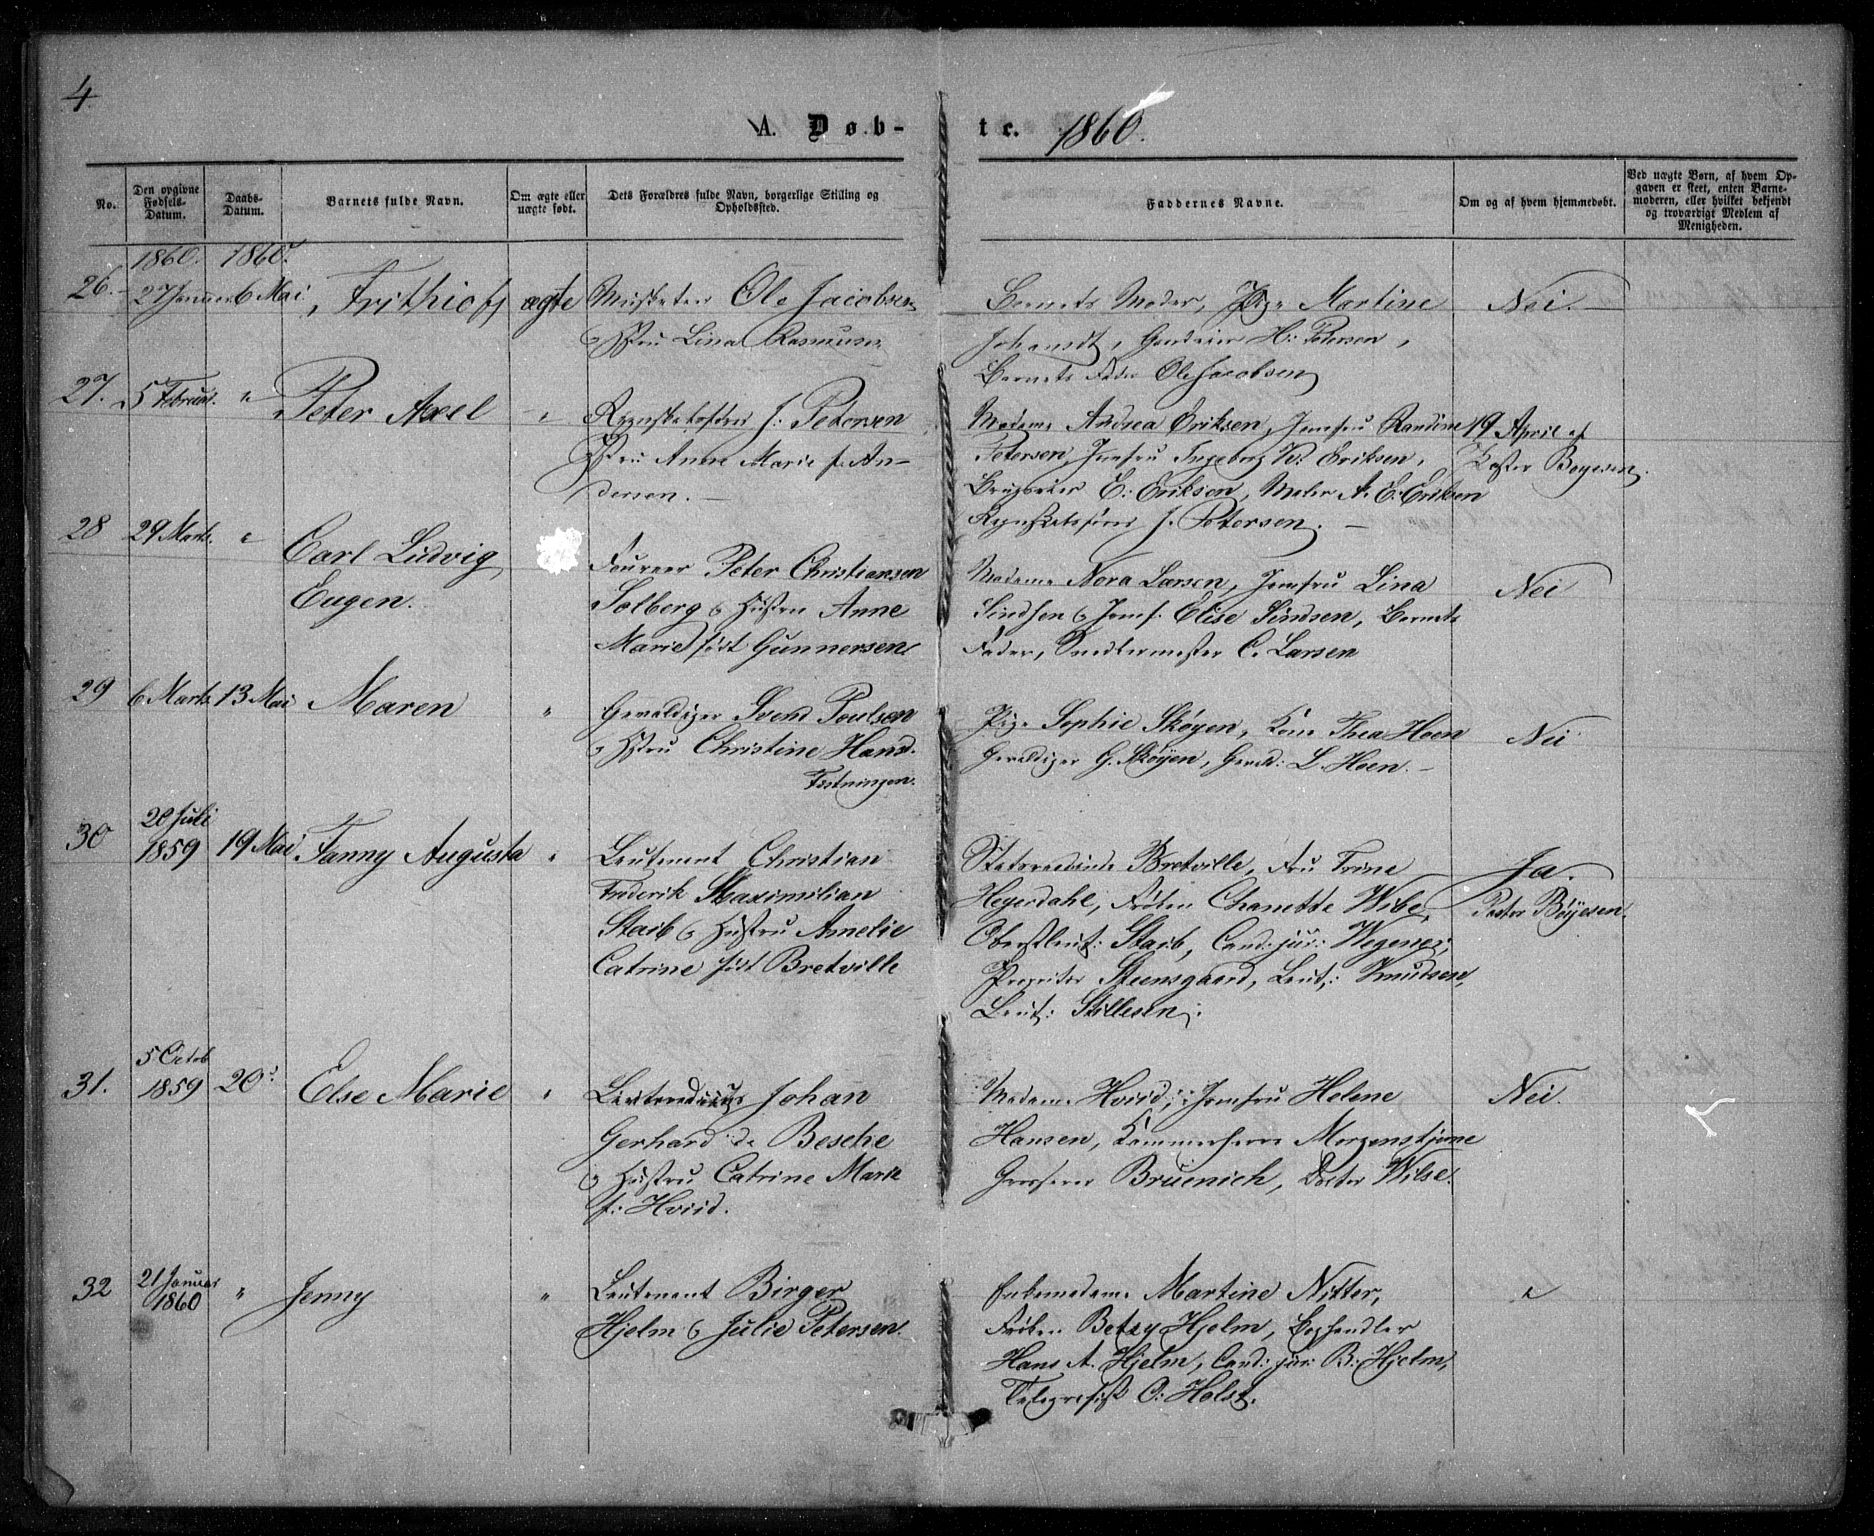 4.
A. Døb-
te. 1860.
No.
Den opgivne
Fødsels-
Datum.
Daabs-
Datum.
Barnets fulde Navn.
Om ægte eller
uægte født.
Dets Forældres fulde Navn, borgerlige Stilling og
Opholdssted.
Faddernes Navne.
Om og af hvem hjemmedøbt.
Ved uægte Børn, af hvem Op-
gaven er skeet, enten Barne-
moderen, eller hvilket bekjendt
og troværdigt Medlem af
Menigheden.
1860. 1860.
26. 27 Januar 6 Mai Frithioff ægte
Musketer Ole Jacobsen
& Hstru Lina Rasmuss.
Barnets Moder, Pige Martine
Johansdt, H: Petersen,
Barnets Fader Ole Jacobsen
Nei.
27. 5 Februar. " Peter Axel "
Regnskabsfører J. Petersen
Hstru Anne Marie f. An-
dersen.
Madame Andrea Eriksen, Jomfru Randine
Petersen, Jomfru Ingeborg W. Eriksen,
E. Eriksen, Maler A. E. Eriksen
Regnskabsfører J. Petersen.
19 April af
Pastor Boyesen.
28 29 Marts. " Carl Ludvig
Eugen.
Foureer Peter Christiansen
Solberg & Hustru Anne
Marie født Gunnersen
Madame Nora Larsen, Jomfru Lina
Sindsen & Jomf. Elise Sindsen, Barnets
Fader, Snedkermester C. Larsen
Nei
29 6 Marts. 13 Mai Maren "
Gevaldiger Svend Poulsen
& Hstru Christine Hans.
Fæstningen.
Pige Sophie Skøyen, Kone Thea Hoen
Gevaldiger G. Skøyen, Gevald: L. Hoen.
Nei
30 20 Juli
1859 19 Mai Fanny Augusta "
Leutenant Christian
Frederik Maximilian
Staib & Hustru Amelie
Catrine født Bretville
Bretville, Fru Trine
Hegerdahl, Frøken Chanette Wibe,
Oberstleut: Staib, Cand: jur: Wegener,
Propriter Steensgaard, Leut: Knudsen,
Leut: Stillesen.
Ja.
Pastor Böyesen.
31. 5 Octob
1859 20. Else Marie "
Johan
Gerhard de Besche
& Hustru Catrine Marie
f: Hviid.
Madame Hviid, Jomfru Helene
Hansen, Kammerherre Morgenstjerne
Grosserer Bruenich, Doctor Wilse.
Nei.
32 21 Januar
1860 " Jenny "
Leutenant Birger
Hjelm & Julie Petersen.
Enkemadame Martine Nitter,
Frøken Betzy Hjelm, Boghandler
Hans A. Hjelm, Cand: jur: B: Hjelm,
Telegrafist O: Holst.
"